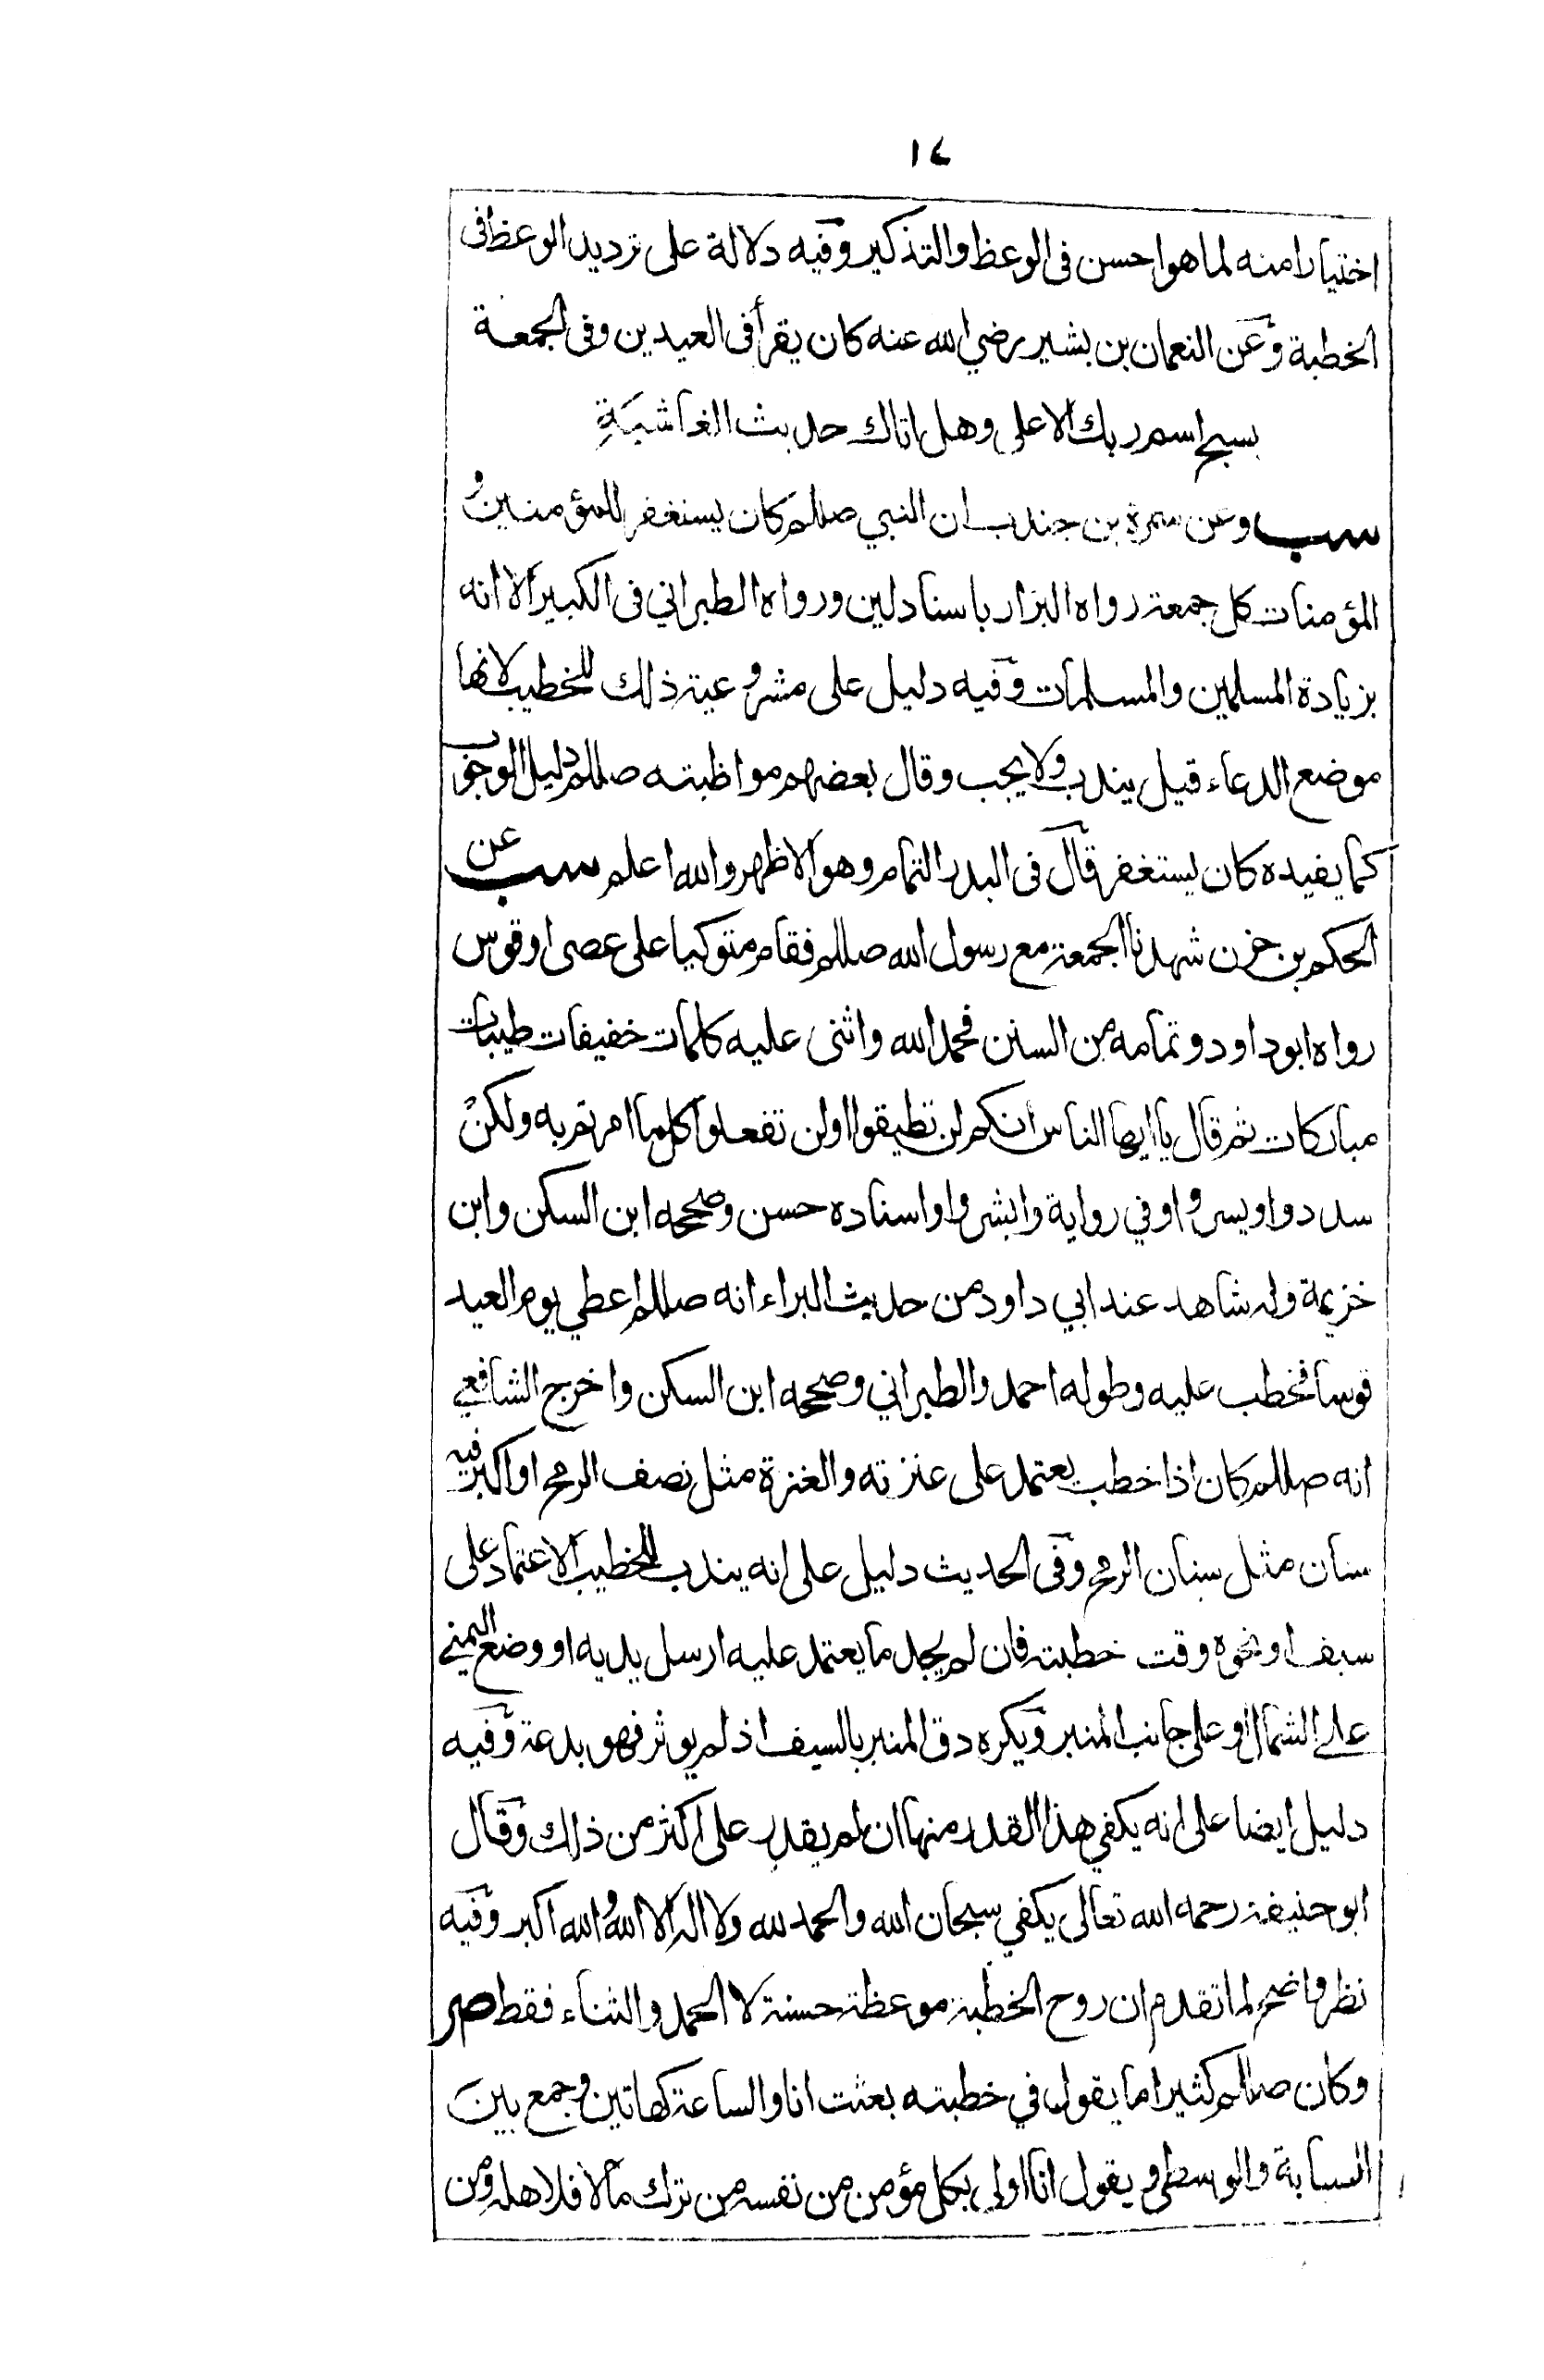 ١٤
اختيارا منه لما هو احسن فى الوعظ والتذكير وفيه دلالة على ترديد الوعظ فى
الخطبة وعن النعمان بن بشير رضي الله عنه كان يقرأ فى العيدين وفى الجمعة
بسبح اسم ربك الاعلى وهل اتاك حديث الغاشية
سب وعن سمرة بن جندب ان النبي صللم كان يستغفر للمؤمنين و
المؤمنات كل جمعة رواه البزار باسناد لين ورواه الطبراني فى الكبير الا انه
بزيادة المسلمين والمسلمات وفيه دليل على مشروعية ذلك للخطيب لانها
موضع الدعاء قيل يندب ولا يجب وقال بعضهم مواظبته صللم دليل الوجوب
كما يفيده كان يستغفر قال فى البدر التمام وهو الاظهر والله اعلم سب عن
الحكم بن حزن شهدنا الجمعة مع رسول الله صللم فقام متوكيا على عصى او قوس
رواه ابو داود وتمامه من السنن فحمد الله واثنى عليه كلمات خفيفات طيبات
مباركات ثم قال يا ايها الناس انكم لن تطيقوا او لن تفعلوا كلما امرتم به ولكن
سددوا ويسروا وفي رواية وابشروا واسناده حسن وصححه ابن السكن وابن
خزيمة وله شاهد عند ابي داود من حديث البراء انه صللم اعطي يوم العيد
قوسا فخطب عليه وطوله احمد والطبراني وصححه ابن السكن واخرج الشافعي
انه صللم كان اذا خطب يعتمد على عنزته والعنزة مثل نصف الرمح او اكبر فيه
سنان مثل سنان الرمح وفى الحديث دليل على انه يندب للخطيب الاعتماد على
سيف او نحوه وقت خطبته فان لم يجد ما يعتمد عليه ارسل يديه او وضع اليمنى
على الشمال او على جانب المنبر ويكره دق المنبر بالسيف اذ لم يوثر فهو بدعة وفيه
دليل ايضا على انه يكفي هذا القدر منها ان لم يقدر على اكثر من ذلك وقال
ابو حنيفة رحمه الله تعالى يكفي سبحان الله والحمد لله ولا اله الا الله والله اكبر وفيه
نظر واضح لما تقدم ان روح الخطبة موعظة حسنة لا الحمد والثناء فقط صر
وكان صللم كثيرا ما يقول في خطبته بعثت انا والساعة كهاتين وجمع بين
السبابة والوسطى ويقول انا اولى بكل مؤمن من نفسه من ترك مالا فلاهله ومن